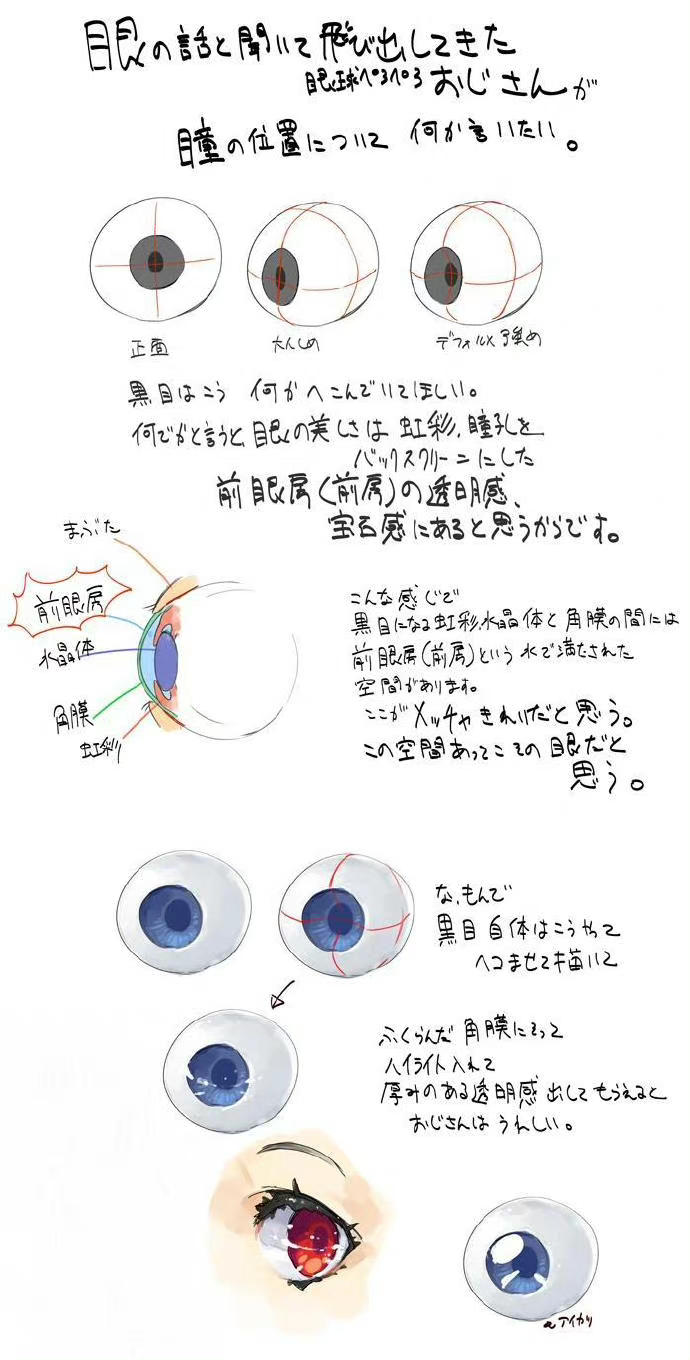 眼の話と聞いて飛び出してきた
眼球ペろペろおじさんが
瞳の位置について 何か言いたい。
正面
大人しめ
デフォルメ強め
黒目はこう 何かへこんでいてほしい。
何でかと言うと、眼の美しさは 虹彩、瞳孔を
バックスクリーンにした
前眼房(前房)の透明感、
宝石感にあると思うからです。
まぶた
前眼房
水晶体
角膜
虹彩
こんな感じで
黒目になる虹彩、水晶体と角膜の間には
前眼房(前房)という水で満たされた
空間があります。
ここがメッチャきれいだと思う。
この空間あってこその眼だと
思う。
な、もんで
黒目自体はこうやって
ヘコませて描いて
ふくらんだ角膜にそって
ハイライト入れて
厚みのある透明感出してもらえると
おじさんはうれしい。
アイカリ